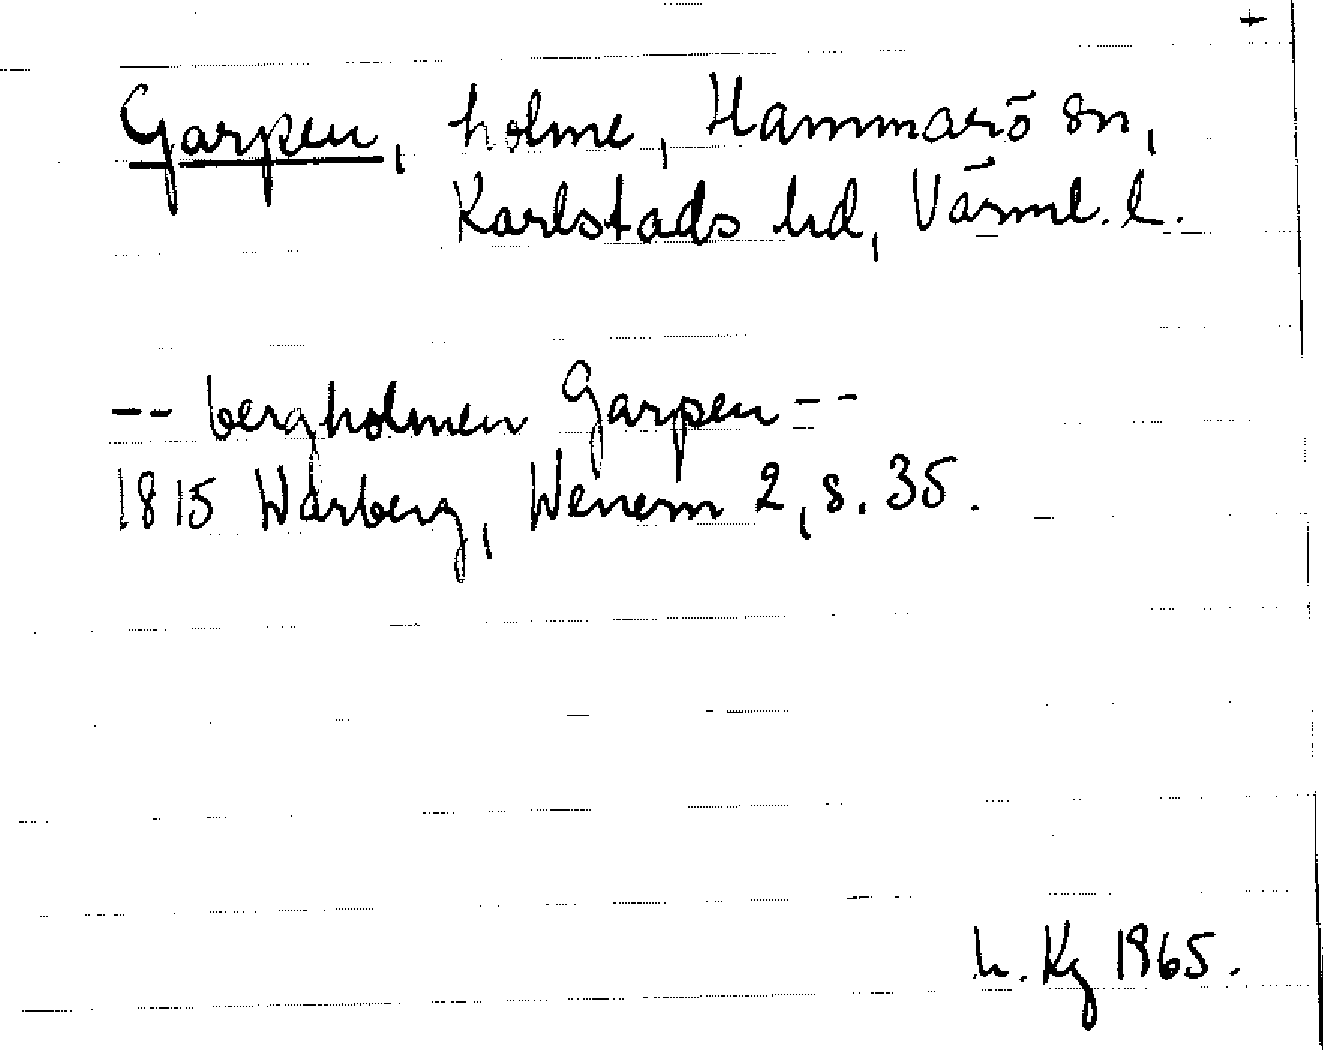 +
Garpen, holme, Hammarö sn,
Karlstads hd, Värml. l.
-- bergholmen Garpen --
1815 Warberg, Wenern 2, s. 35.
h. Kg 1965.